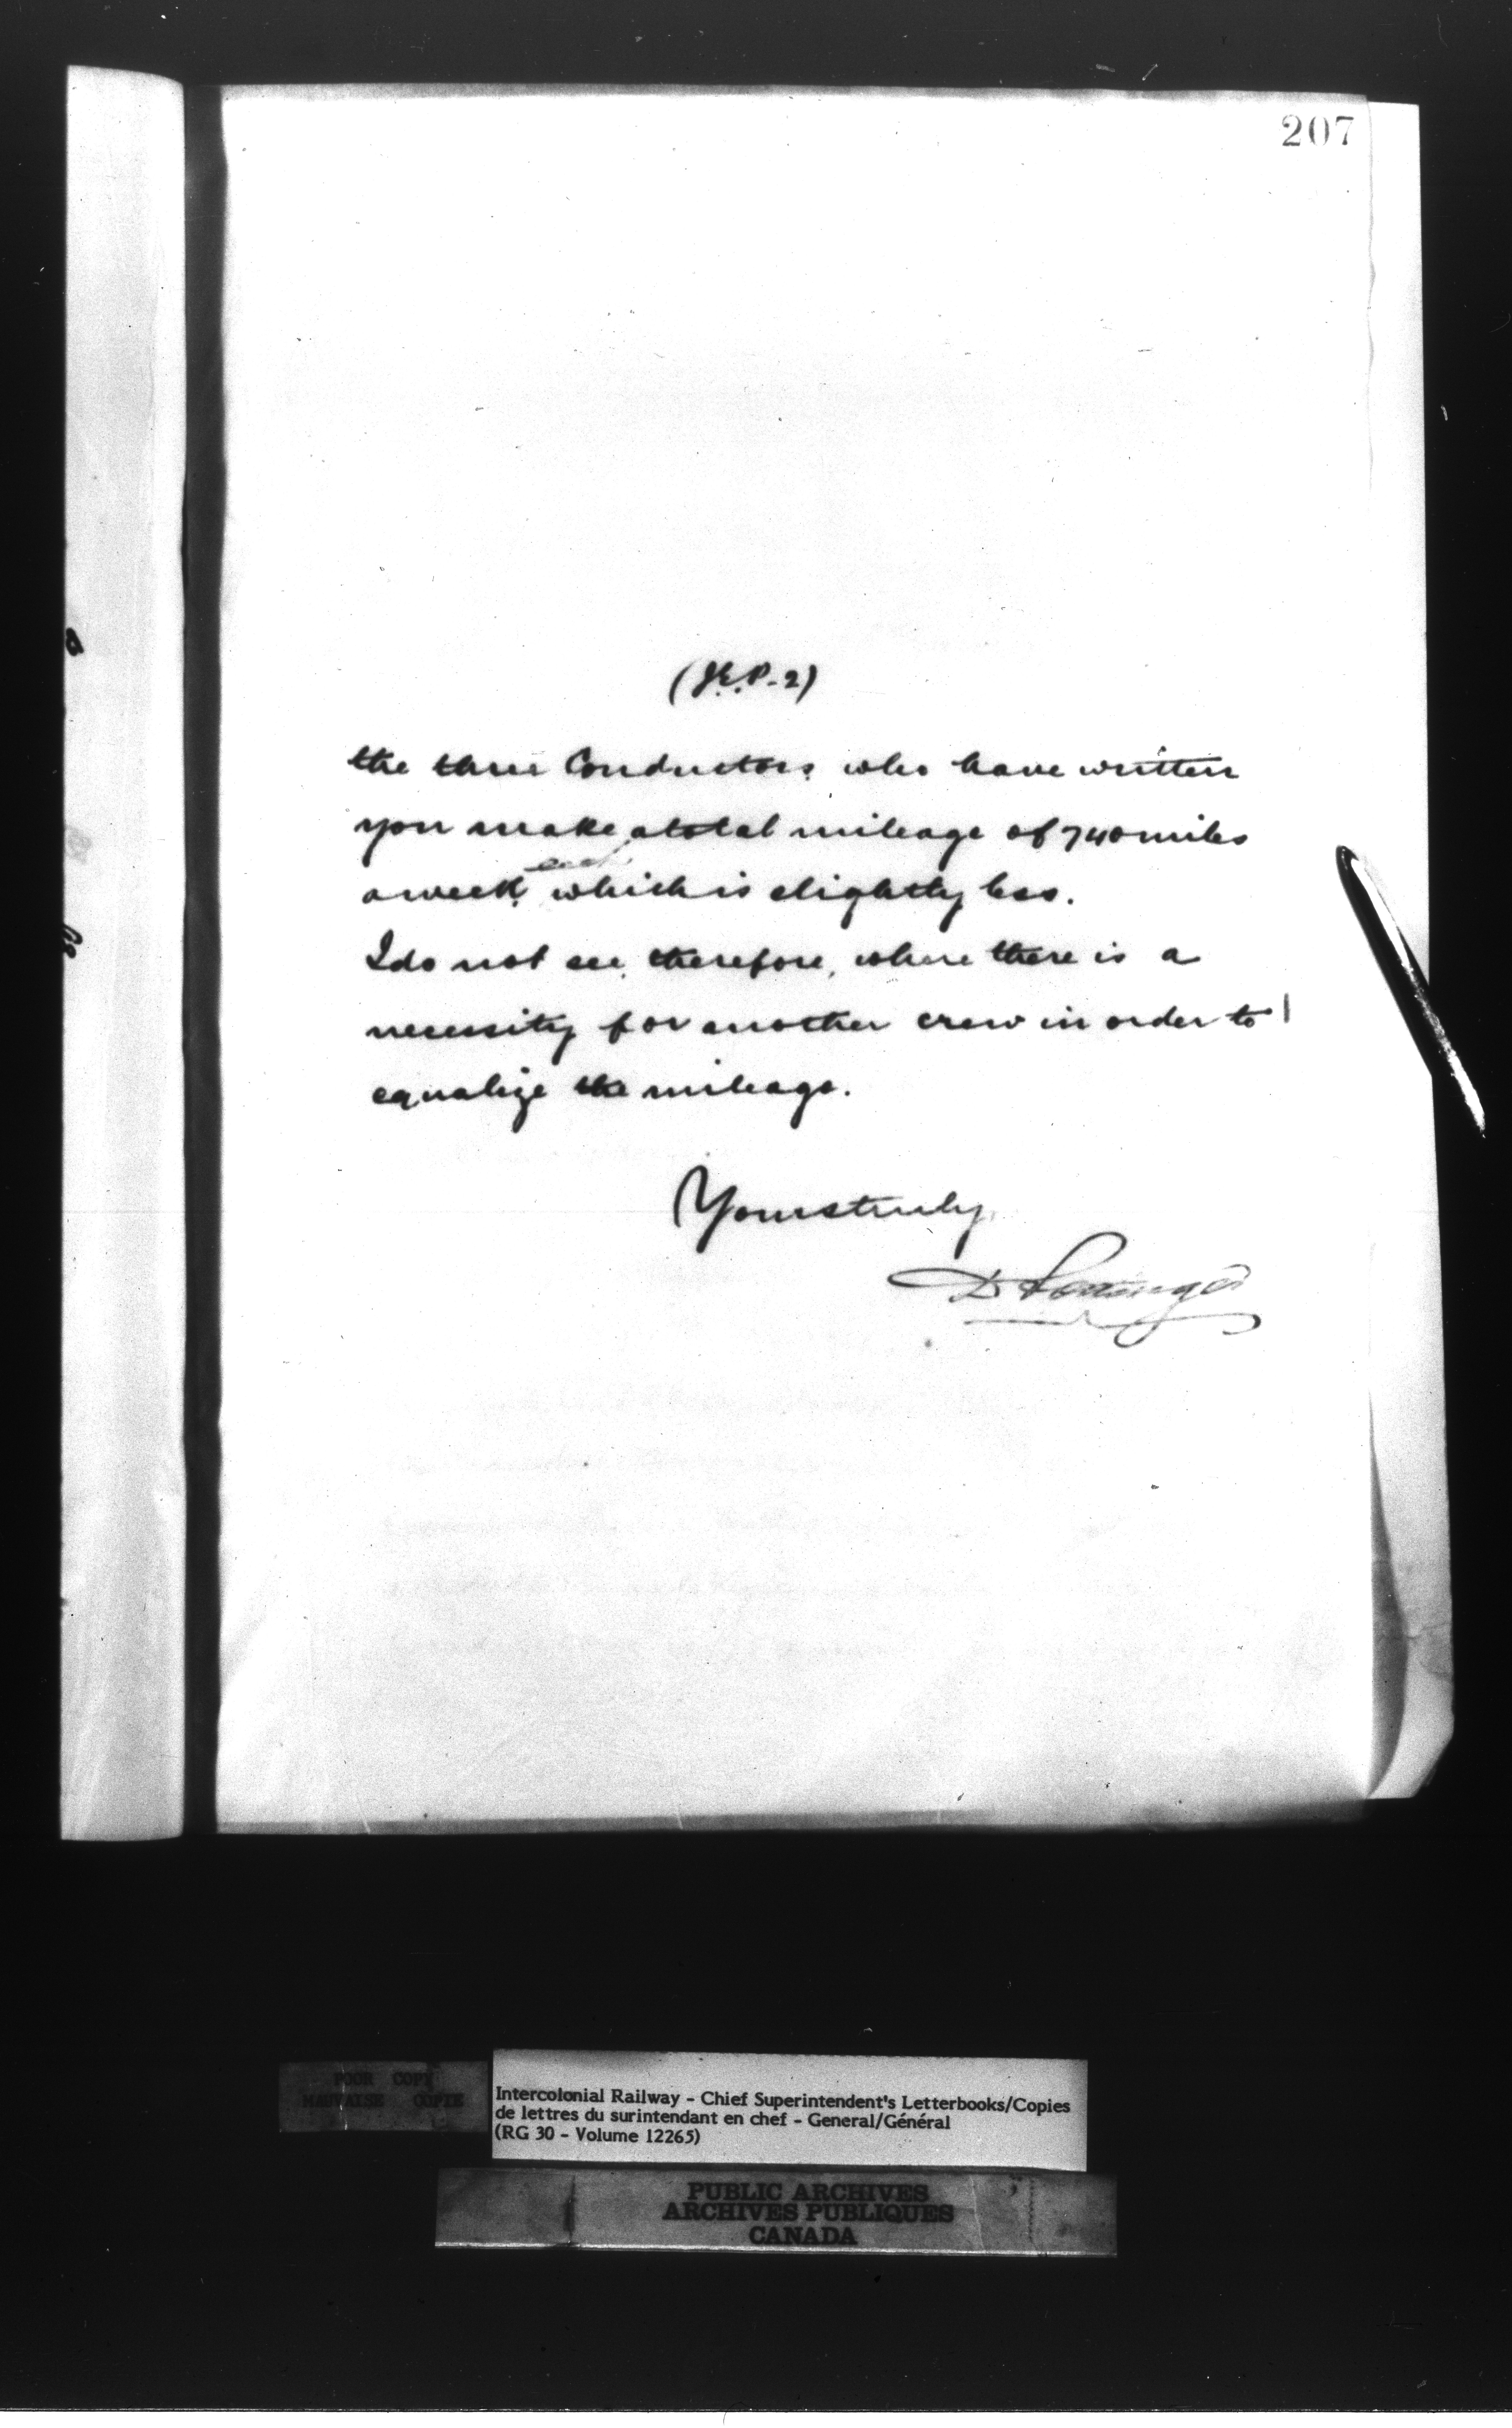 207
(J.E.P. - 2)
the three Conductors, who have written
you make a total mileage of 740 miles
a week, each which is slightly less.
I do not see, therefore, where there is a
necessity for another crew in order to
equalize the mileage.
Yours truly,
D Pottinger
POOR COPY
MAUVAISE COPIE
Intercolonial Railway - Chief Superintendent's Letterbooks/Copies
de lettres du surintendant en chef - General/Général
(RG 30 - Volume 12265)
PUBLIC ARCHIVES
ARCHIVES PUBLIQUES
CANADA